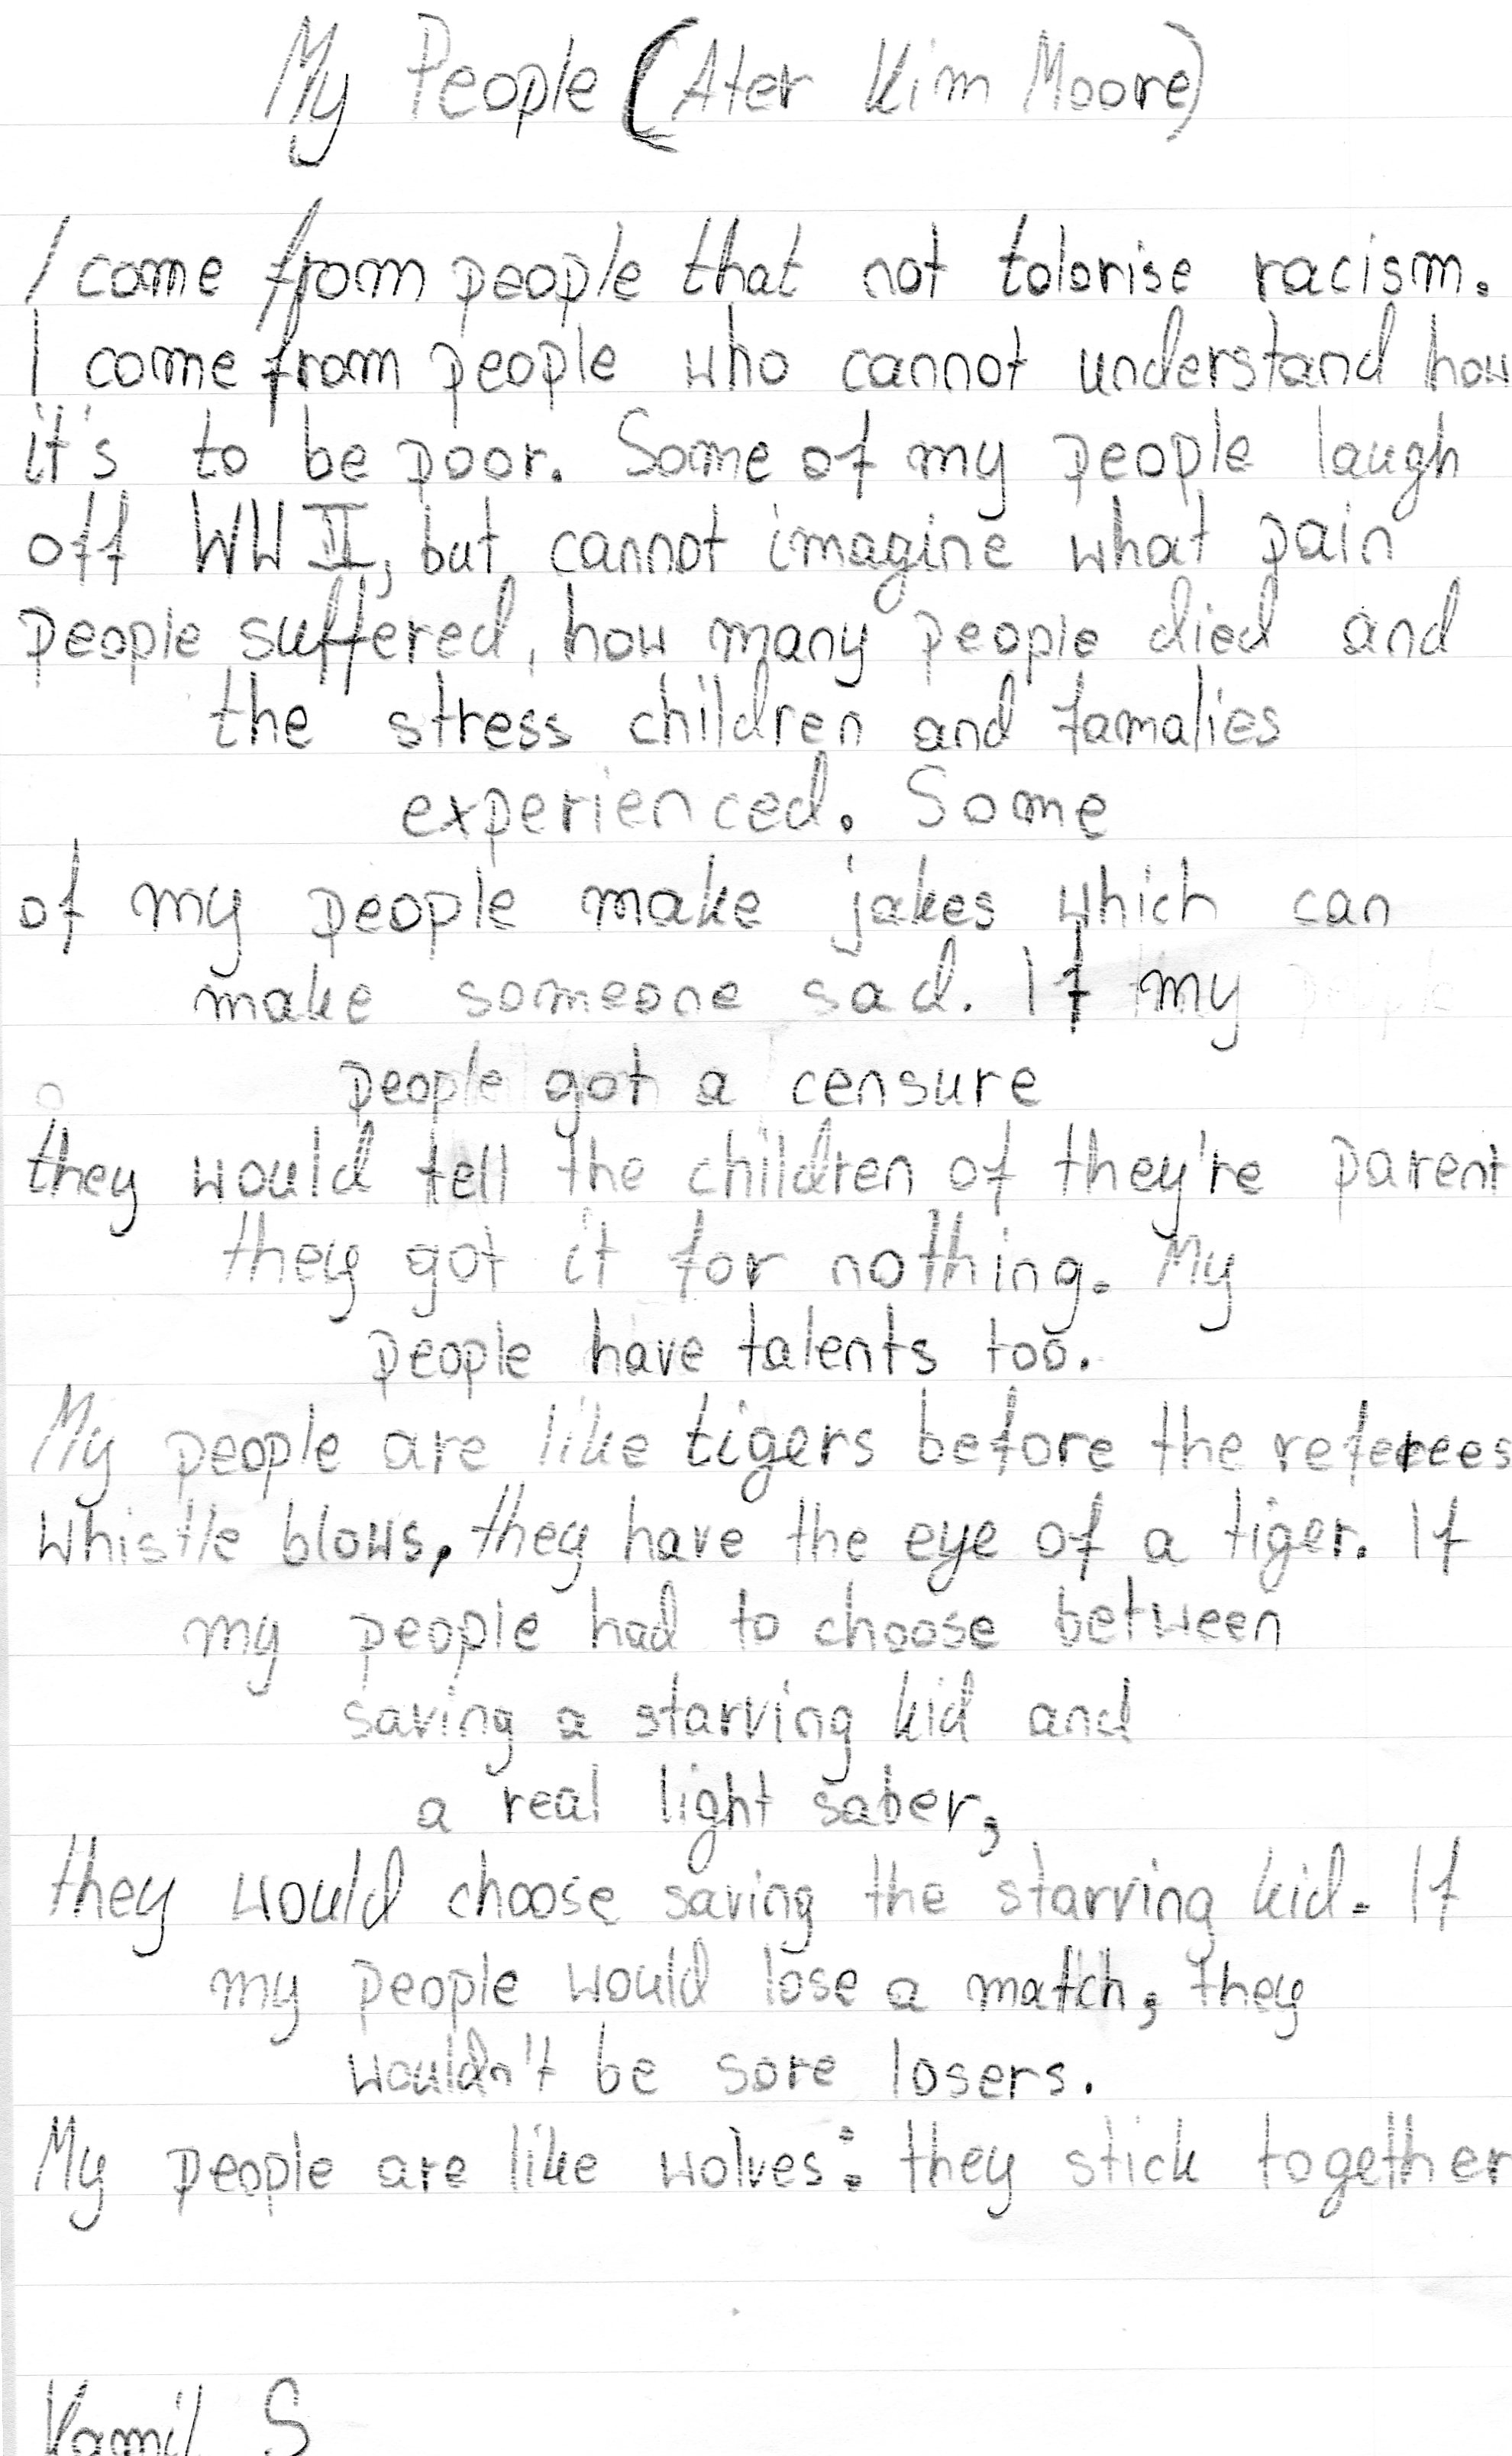 My People (Ater Kim Moore)
I come from people that not tolorise racism.
I come from people who cannot understand how
it's to be poor. Some of my people laugh
off WW II, but cannot imagine what pain
people suffered, how many people died and
the stress children and famalies
experienced. Some
of my people make jakes which can
make someone sad. If my
people got a censure
they would tell the children of they're parent
they got it for nothing. My
people have talents too.
My people are like tigers before the referees
whistle blows, they have the eye of a tiger. If
my people had to choose between
saving a starving kid and
a real light saber,
they would choose saving the starving kid. If
my people would lose a match, they
wouldn't be sore losers.
My people are like wolves: they stick together
Kamil S